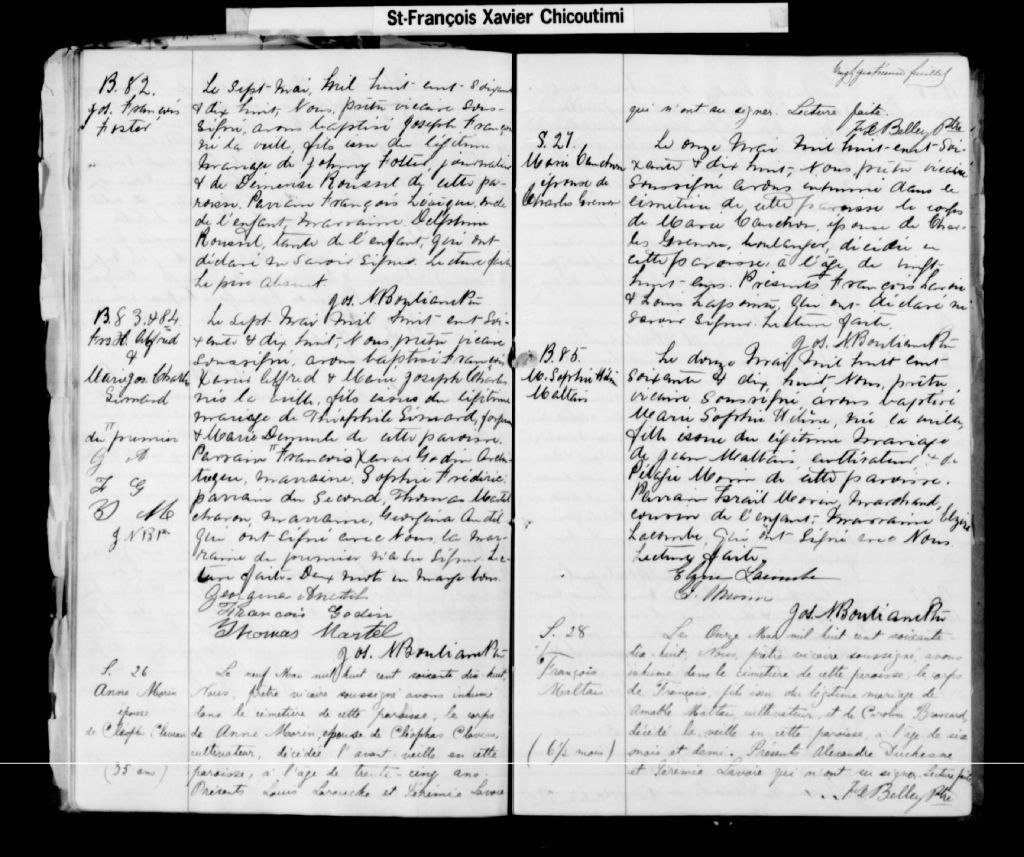 St-François Xavier Chicoutimi
B. 82.
Jos. François
Foster
Le Sept Mai, Mil huit cent Soixante
& dix huit, Nous, prêtre vicaire Sous-
signé, avons baptisé Joseph François
né la veille, fils issu du légitime
mariage de Johnny Foster, journalier
& de Démerise Roussel de cette pa-
roisse. Parrain François Lévèque, oncle
de l'enfant, marraine Delphine
Roussel, tante de l'enfant, qui ont
déclaré ne savoir signer. Lecture faite
Le père absent.
Jos. N. Boulianne Ptre
B. 83. & 84.
Frs X. Alfred
&
Marie Jos. Charles
Simard
"du premier
G A
F G
T M
J N B Ptre
Le Sept Mai Mil huit cent Soi-
xante & dix huit, Nous prêtre vicaire
soussigné, avons baptisé François
Xavier Alfred & Marie Joseph Charles
nés la veille, fils issus du légitime
mariage de Théophile Simard, forgeron
& Marie de cette paroisse.
Parrain "François Xavier Godin
marraine, Sophie Frédéric.
parrain du second, Thomas Martel
marraine, Georgina
qui ont signé avec Nous, la mar-
raine du premier n'a su signer. Lec-
ture faite. Deux mots en marge bons.
François Godin
Thomas Martel
Jos. N. Boulianne Ptre
S. 26
Anne Morin
épouse
de Cléoph. Claveau
(35 ans)
Le neuf Mai mil huit cent soixante dix huit,
Nous, prêtre vicaire soussigné avons inhumé
dans le cimetière de cette paroisse, le corps
de Anne Morin, épouse de Cléophas Claveau,
cultivateur, décédée l'avant-veille en cette
paroisse, à l'âge de trente-cinq ans
Présents Louis Larouche et Jérémie Lavoie
feuillet
qui n'ont su signer. Lecture faite.
F. X. Belley Ptre
S. 27.
Marie Cauchon
épouse de
Charles Grenon
Le onze Mai Mil huit-cent Soi-
xante & dix huit, Nous prêtre vicaire
soussigné avons inhumé dans le
cimetière de cette paroisse le corps
de Marie Cauchon, épouse de Char-
les Grenon, boulanger, décédée en
cette paroisse à l'âge de vingt-
huit ans. Présents François Lavoie
& Louis Lapointe, qui ont déclaré ne
savoir signer. Lecture faite.
Jos. N. Boulianne Ptre
B. 85.
M. Sophie Hélène
Maltais
Le douze Mai Mil huit cent
soixante & dix huit Nous, prêtre
vicaire soussigné avons baptisé
Marie Sophie Hélène, née la veille,
fille issue du légitime mariage
de Jean Maltais cultivateur & de
Pélagie Morin de cette paroisse.
Parrain Israïl Morin, marchand,
cousin de l'enfant, marraine Elzire
Lacombe, qui ont signé avec Nous.
Lecture faite.
Elzire Lacombe
I. Morin
Jos. N. Boulianne Ptre
S. 28
François
Maltais
(6½ mois)
Le Onze Mai mil huit cent soixante-
dix-huit, Nous, prêtre vicaire soussigné, avons
inhumé dans le cimetière de cette paroisse, le corps
de François, fils issu du légitime mariage de
Amable Maltais, cultivateur, et de Caroline Brassard,
décédé la veille en cette paroisse, à l'âge de six
mois et demi. Présents Alexandre Duchesne
et Jérémie Lavoie qui n'ont su signer. Lecture faite,
F. X. Belley Ptre